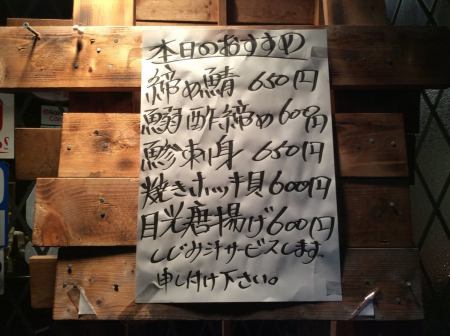 本日のおすすめ
締め鯖 650円
鰯酢締め 600円
鯵刺身 650円
焼きホッキ貝 600円
目光唐揚げ 600円
しじみ汁サービスします。
申し付け下さい。